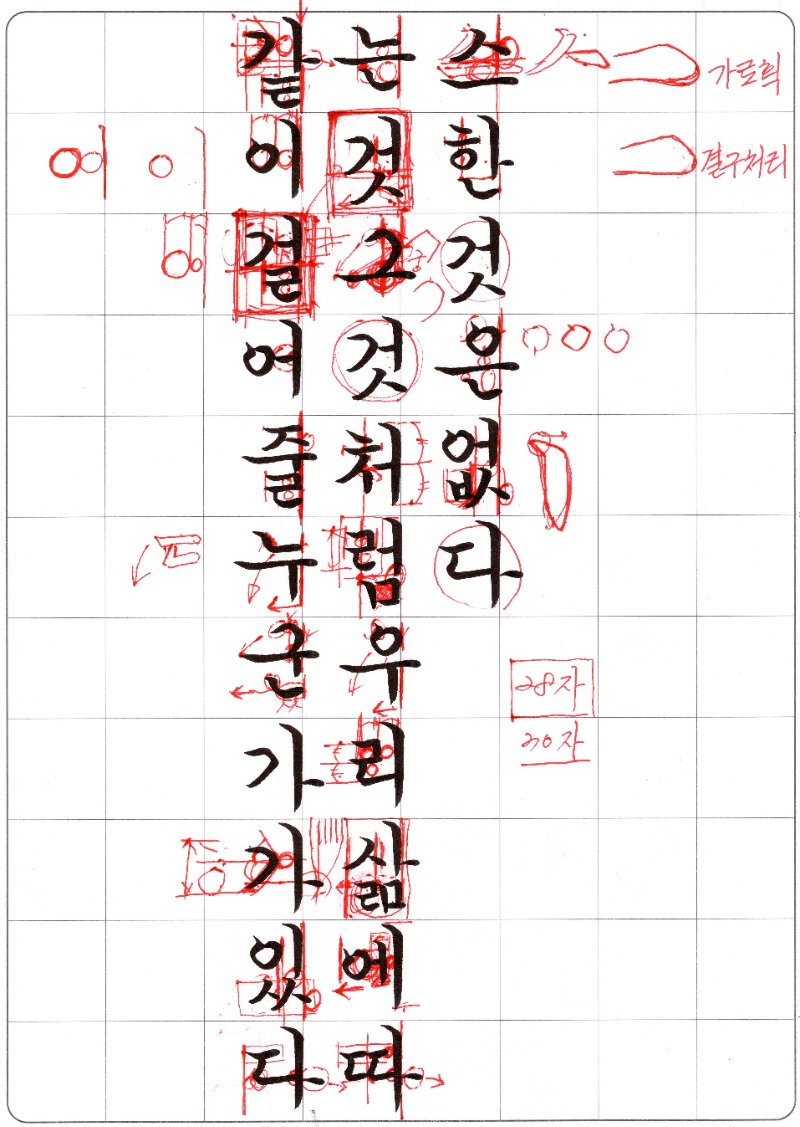 같이걸어줄누군가가있다
는것그것처럼우리삶에따
스한것은없다
가로획
결구처리
28자
30자